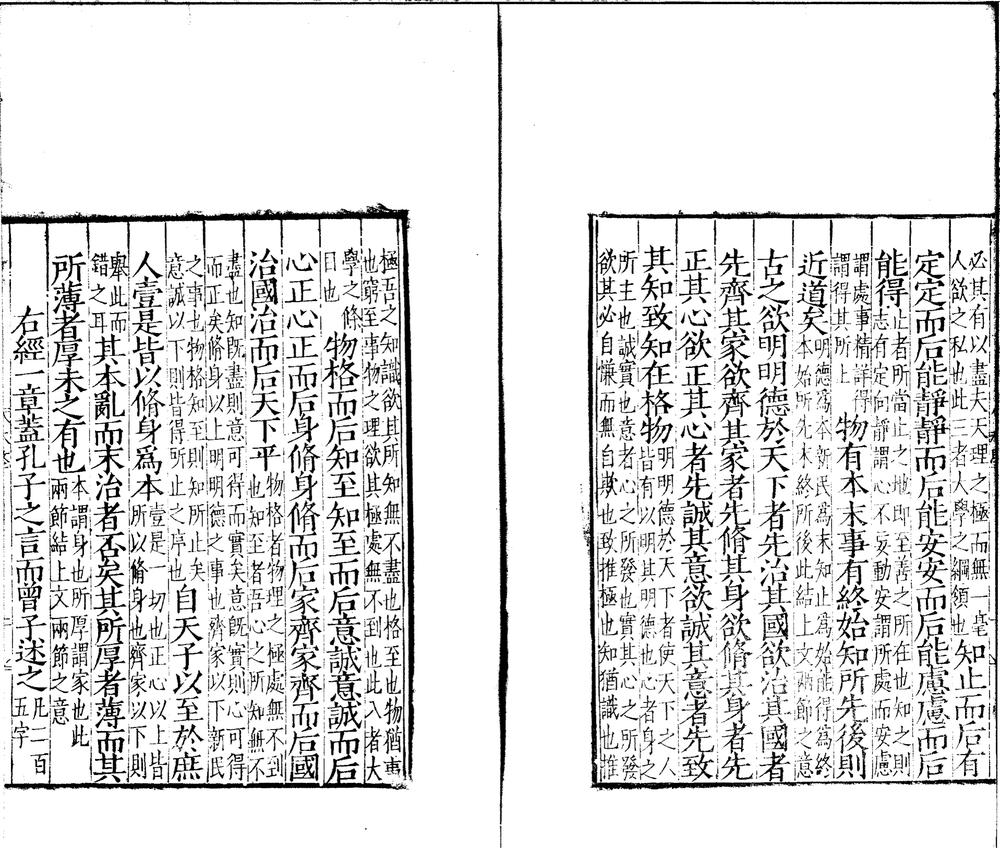 必其有以盡夫天理之極而無一毫人欲之私也此三者大學之綱領也知止而后有
定定而后能靜靜而后能安安而后能慮慮而后
能得止者所當止之地即至善之所在也知之則志有定向靜謂心不妄動安謂所處而安慮
謂處事精詳得謂得其所止物有本末事有終始知所先後則
近道矣明德爲本新民爲末知止爲始能得爲終本始所先末終所後此結上文兩節之意
古之欲明明德於天下者先治其國欲治其國者
先齊其家欲齊其家者先脩其身欲脩其身者先
正其心欲正其心者先誠其意欲誠其意者先致
其知致知在格物明明德於天下者使天下之人皆有以明其明德也心者身之
所主也誠實也意者心之所發也實其心之所發欲其必自慊而無自欺也致推極也知猶識也推
極吾之知識欲其所知無不盡也格至也物猶事也窮至事物之理欲其極處無不到也此八者大
學之條目也物格而后知至知至而后意誠意誠而后
心正心正而后身脩身脩而后家齊家齊而后國
治國治而后天下平物格者物理之極處無不到也知至者吾心之所知無不
盡也知既盡則意可得而實矣意既實則心可得而正矣脩身以上明明德之事也齊家以下新民
之事也物格知至則知所止矣意誠以下則皆得所止之序也自天子以至於庶
人壹是皆以脩身爲本壹是一切也正心以上皆所以脩身也齊家以下則
舉此而錯之耳其本亂而末治者否矣其所厚者薄而其
所薄者厚未之有也本謂身也所厚謂家也此兩節結上文兩節之意
右經一章蓋孔子之言而曾子述之凡二百五字